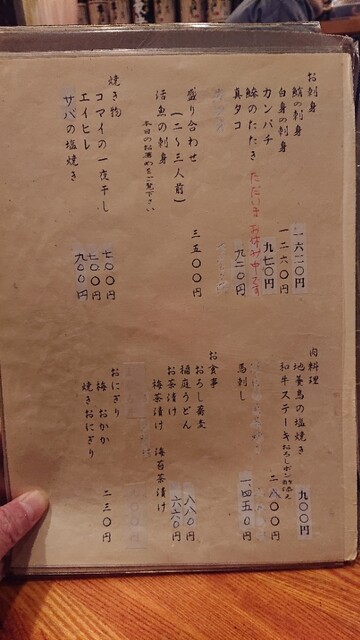 お刺身
鮪の刺身 一六二〇円
白身の刺身 一二六〇円
カンパチ 九七〇円
鯵のたたき ただいま お休み中です
真タコ 九二〇円
盛り合わせ
(二〜三人前) 三五〇〇円
活魚の刺身
本日のお薦めをご覧下さい
焼き物
コマイの一夜干し 七〇〇円
エイヒレ 七〇〇円
サバの塩焼き 九〇〇円
肉料理
地養鳥の塩焼き 九〇〇円
和牛ステーキ おろしポン酢添え 二八〇〇円
馬刺し 一四五〇円
お食事
おろし蕎麦
稲庭うどん 八八〇円
お茶漬け 六六〇円
梅茶漬け 海苔茶漬け
おにぎり
梅 おかか
焼きおにぎり 二三〇円